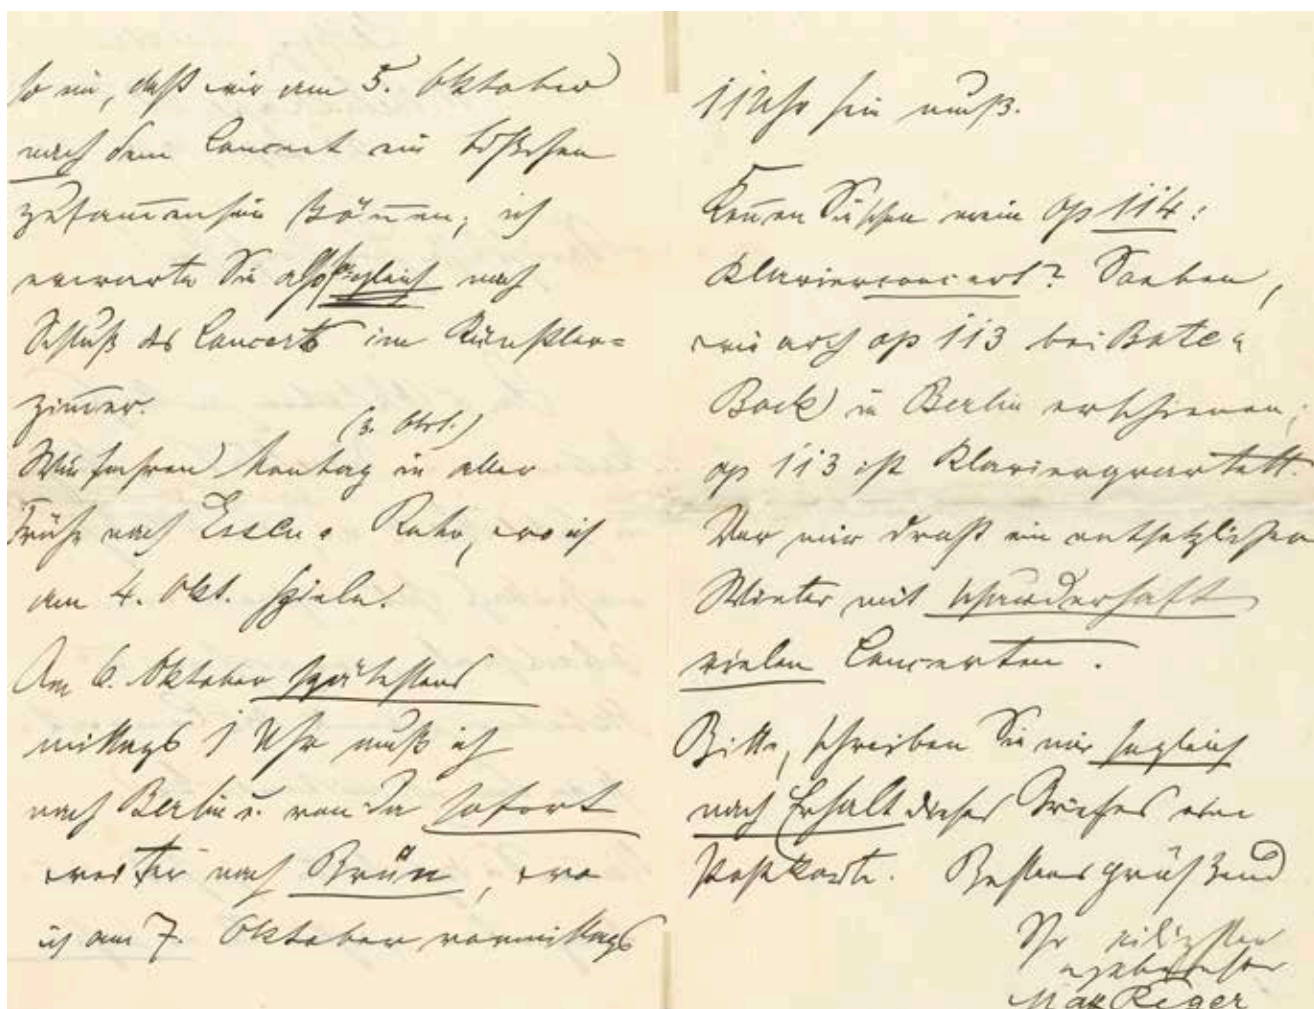 so ein, daß wir am 5. Oktober
nach dem Concert ein bißchen
zusammensein können; ich
erwarte Sie also sogleich nach
Schluß des Concerts im Künstler=
zimmer.
(3. Okt.)
Wir fahren Montag in aller
Frühe nach Essen Ruhr, wo ich
am 4. Okt. spiele.
Am 6. Oktober spätestens
mittags 1 Uhr muß ich
nach Berlin u. von da sofort
weiter nach Brünn, wo
ich am 7. Oktober vormittags
11 Uhr sein muß.
Kennen Sie schon mein op 114:
Klavierconcert? Soeben,
wie auch op 113 bei Bote &
Bock in Berlin erschienen;
op 113 ist Klavierquartett.
Vor mir droht ein entsetzlicher
Winter mit schauderhaft
vielen Concerten.
Bitte, schreiben Sie mir sogleich
nach Erhalt dieses Briefes eine
Postkarte. Bestens grüßend
Ihr eiligster
ergebenster
Max Reger